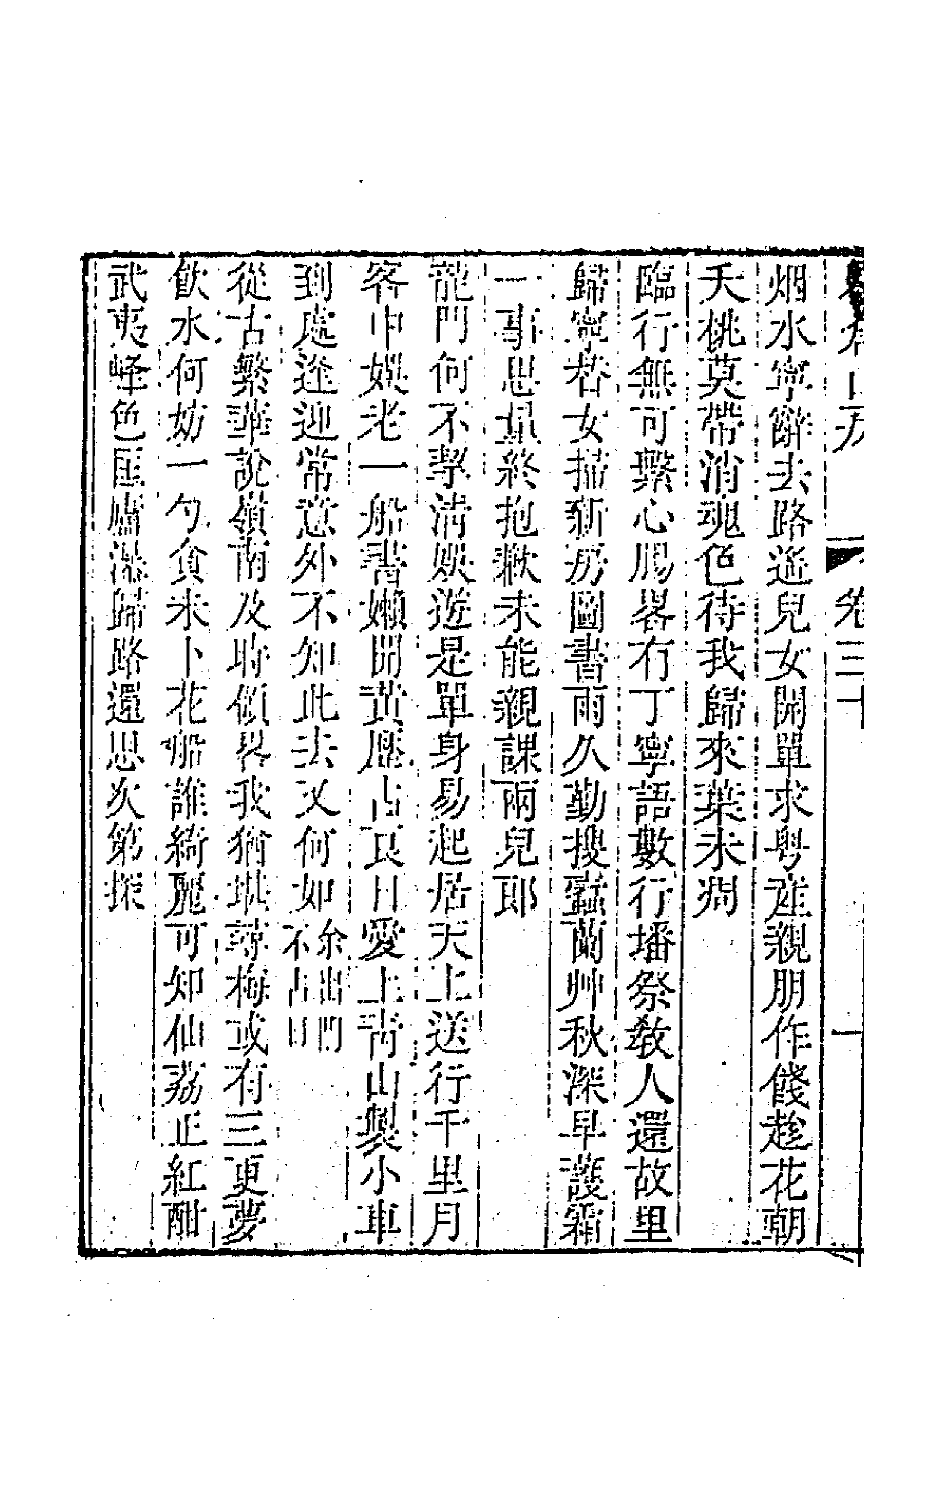 卷三十
一
烟水寧辭去路遥兒女開單求粤産親朋作餞趁花朝
夭桃莫帶消魂色待我歸來葉未凋
臨行無可繫心腸畧有丁寧語數行墦祭敎人還故里
歸寧替女掃新房圖書雨久勤搜蠹蘭艸秋深早護霜
一事思量終抱歉未能親課兩兒郎
龍門何不挈淸娛遊是單身易起居天上送行千里月
客中娛老一船書嬾開黃歷占良日愛上靑山製小車
到處逢迎常意外不知此去又何如余出門不占日
從古繁華說嶺南及時傾畧我猶堪尋梅或有三更夢
飮水何妨一勺貪米卜花船誰綺麗可知仙荔正紅酣
武夷峰色匡廬瀑歸路還思次第探